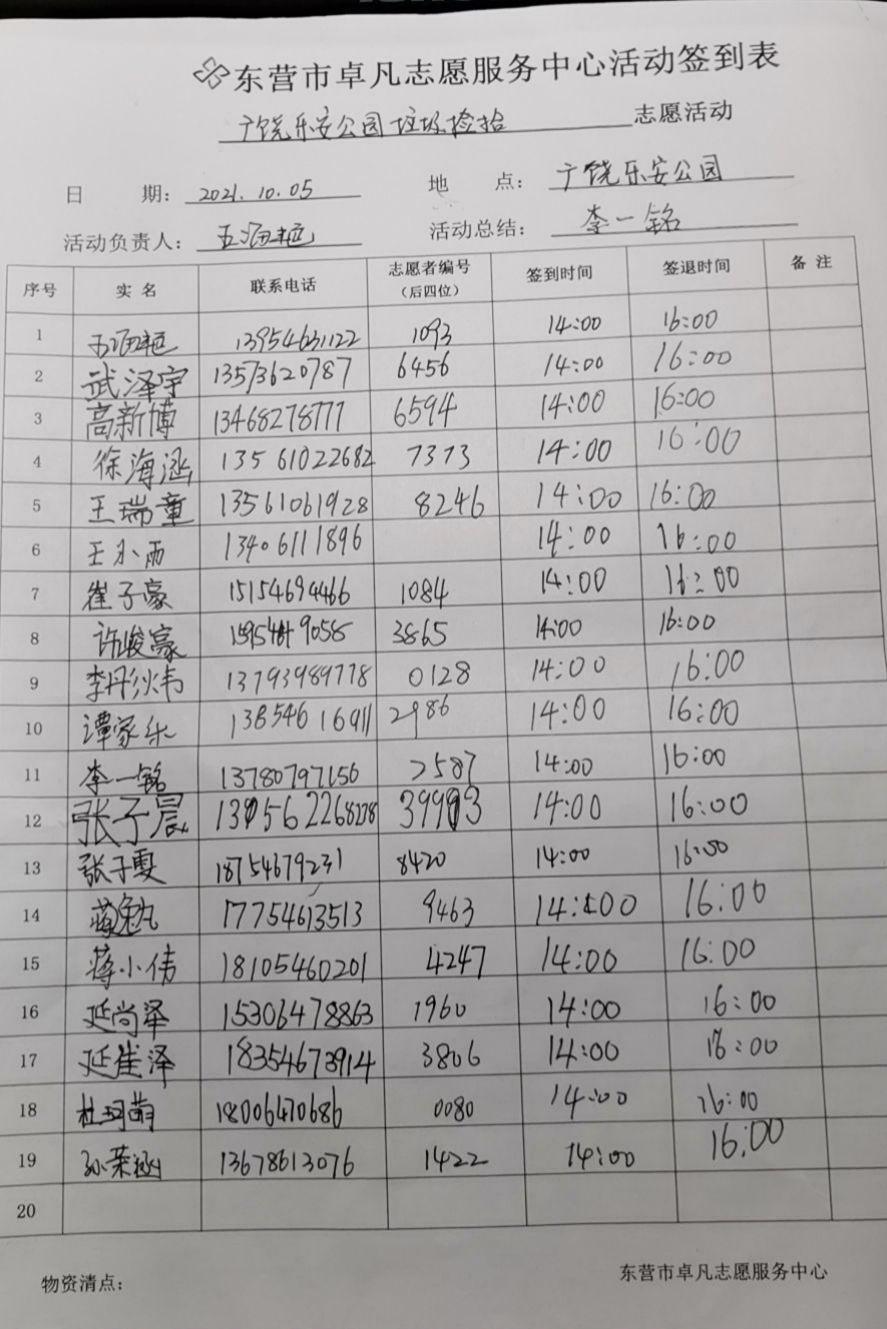 东营市卓凡志愿服务中心活动签到表
广饶乐安公园垃圾捡拾 志愿活动
日 期: 2021.10.05 地 点: 广饶乐安公园
活动负责人: 活动总结: 李一铭
序号 实名 联系电话 志愿者编号(后四位) 签到时间 签退时间 备注
1 13954631122 1093 14:00 16:00
2 武泽宇 13573620787 6456 14:00 16:00
3 高新博 13468278777 6594 14:00 16:00
4 徐海涵 13561022682 7373 14:00 16:00
5 王瑞童 13561061928 8246 14:00 16:00
6 王小雨 13406111896 14:00 16:00
7 崔子豪 15154694466 1084 14:00 16:00
8 许峻豪 3865 14:00 16:00
9 13793989778 0128 14:00 16:00
10 谭家乐 13854616911 2986 14:00 16:00
11 李一铭 13780797156 2587 14:00 16:00
12 张子晨 14:00 16:00
13 张子雯 18754679231 8420 14:00 16:00
14 17754613513 9463 14:00 16:00
15 蒋小伟 18105460201 4247 14:00 16:00
16 延尚泽 15306478863 1960 14:00 16:00
17 延崔泽 18354673914 3806 14:00 16:00
18 杜珂萌 18006470686 0080 14:00 16:00
19 孙荣涵 13678613076 1422 14:00 16:00
20
物资清点: 东营市卓凡志愿服务中心